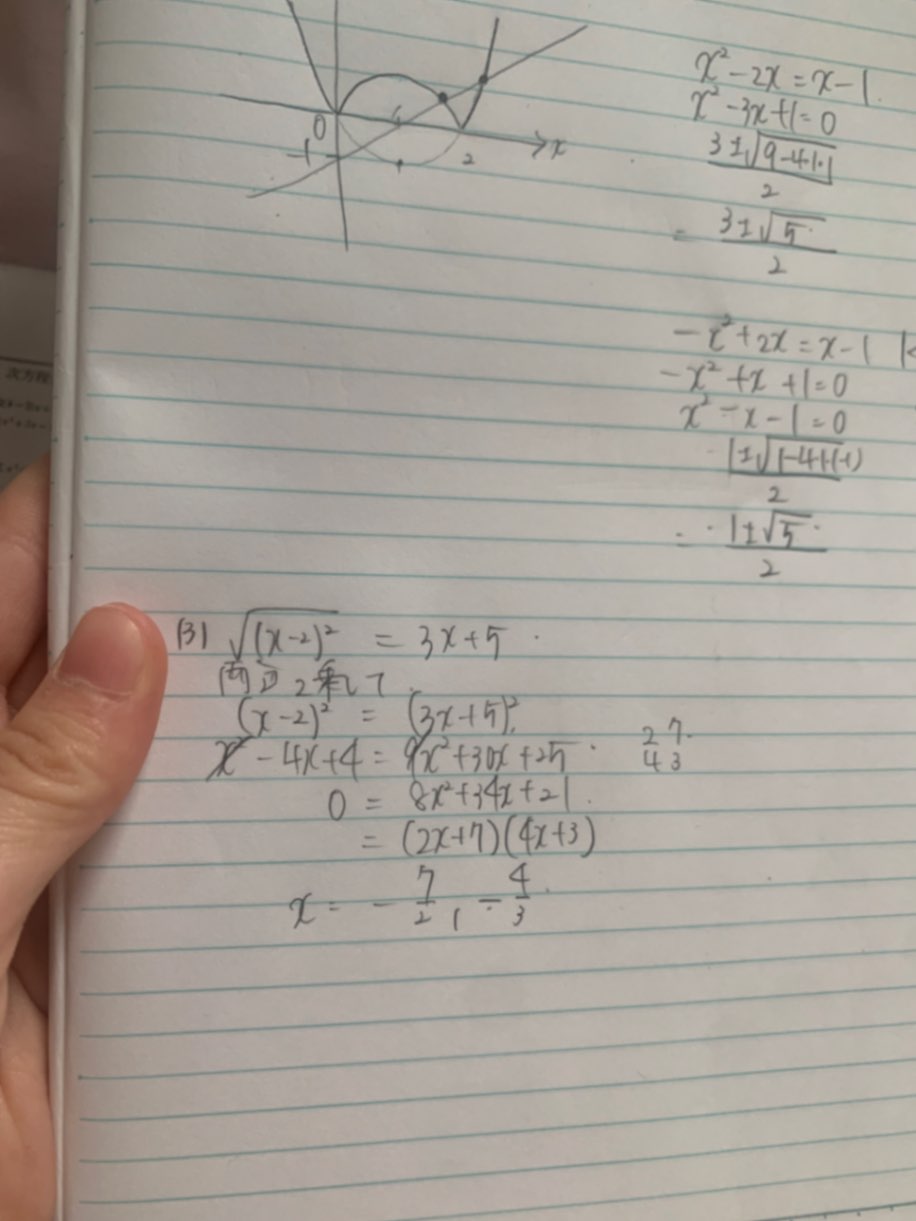 0
-1
1
2
x
x² - 2x = x - 1
x² - 3x + 1 = 0
3 ± √9 - 4・1・1
2
= 3 ± √5
2
- x² + 2x = x - 1
- x² + x + 1 = 0
x² - x - 1 = 0
1 ± √1 - 4・1・(-1)
2
= 1 ± √5
2
(3) √(x-2)² = 3x + 5
両辺2乗して
(x-2)² = (3x+5)²
x² - 4x + 4 = 9x² + 30x + 25
2 7
4 3
0 = 8x² + 34x + 21
= (2x+7)(4x+3)
x = - 7/2, - 4/3